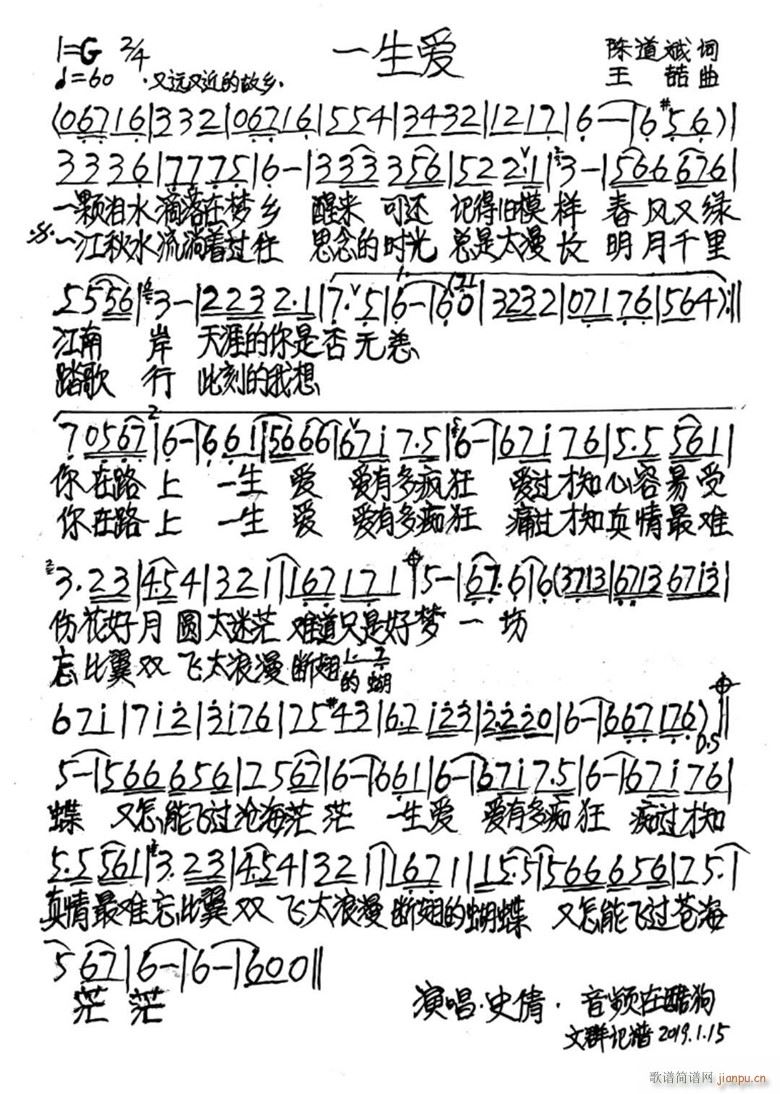 1=G 2/4 一生爱 陈道斌 词
♩=60 ·又远又近的故乡· 王喆 曲
(06716|332|06716|554|3432|1217|6-|6#56)||
3336|7775|6-|333356|522·1|3-|566676|
一颗泪水滴落在梦乡 醒来 可还 记得旧模样 春风又绿
一江秋水流淌着过往 思念的时光 总是太漫长 明月千里
5556|3-|22321|7·5|6-|60|3232|07176|564):||
江南 岸 天涯的你是否无恙
踏歌 行 此刻的我想
70567|6-|661|5666|671 7·5|6-|67176|5·5561|
你在路上 一生 爱 爱有多疯狂 爱过才知心容易受
你在路上 一生 爱 爱有多痴狂 痛过才知真情最难
3·23|4·54|321|167171|5-|67·6|6(3713|67136713|
伤花好月圆太迷茫 难道只是好梦一场
忘比翼双飞太浪漫断翅的蝴
671|712|3176|75#43|6·7123|2·220|6-|667176)||
5-|566656|2567|6-|661|6-|6717·5|6-|67176|
蝶 又怎能飞过沧海茫茫 一生爱 爱有多痴狂 痴过才知
5·5561|3·23|4·54|321|1671|115·5|566656|75·|
真情最难忘比翼双飞太浪漫断翅的蝴蝶 又怎能飞过苍海
567|6-|6-|600||
茫茫 演唱·史倩· 音频在酷狗
文群记谱2019.1.15
歌谱简谱网 jianpu.cn